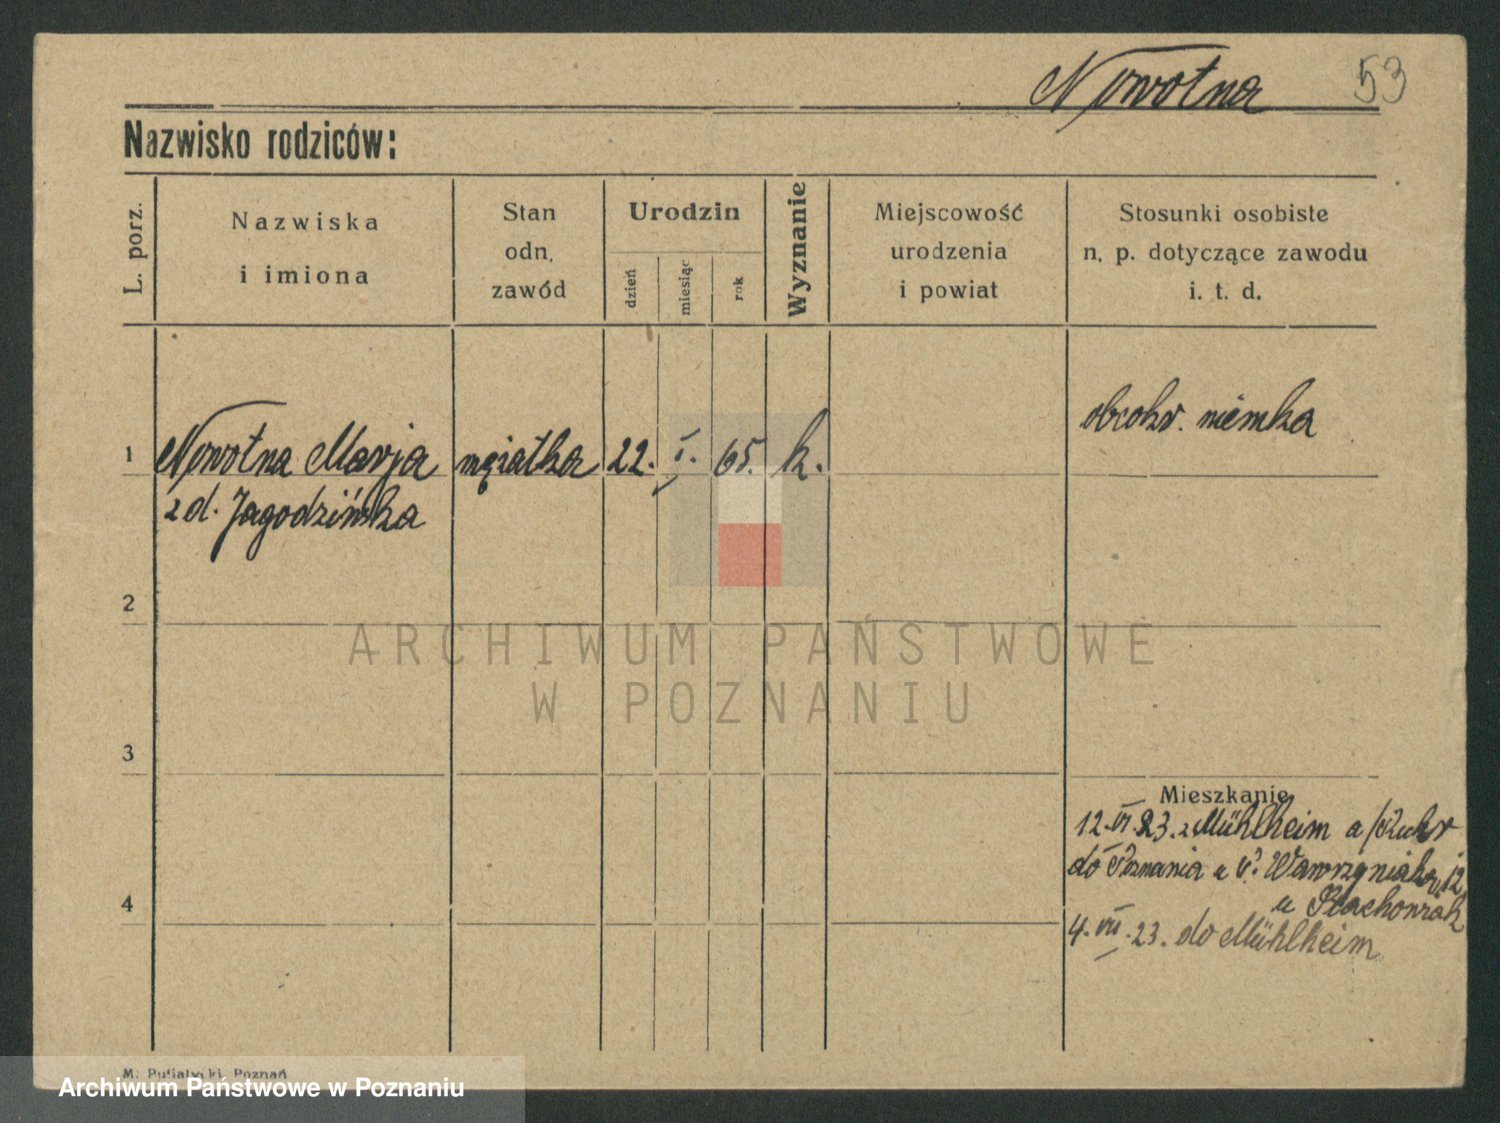 Nowotna 53
Nazwisko rodziców:
L. porz.
Nazwiska
i imiona
Stan
odn.
zawód
Urodzin
dzień
miesiąc
rok
Wyznanie
Miejscowość
urodzenia
i powiat
Stosunki osobiste
n. p. dotyczące zawodu
i. t. d.
obcokr. niemka
1 Nowotna Marja mężatka 22. I. 65. k.
z d. Jagodzińska
2
ARCHIWUM PAŃSTWOWE
W POZNANIU
3
Mieszkanie
12. VI. 23. z Mühlheim a/Ruhr
do Poznania u P. Wawrzyniaka 12
4
u
4. VII. 23. do Mühlheim
M. Pusiatycki, Poznań
Archiwum Państwowe w Poznaniu